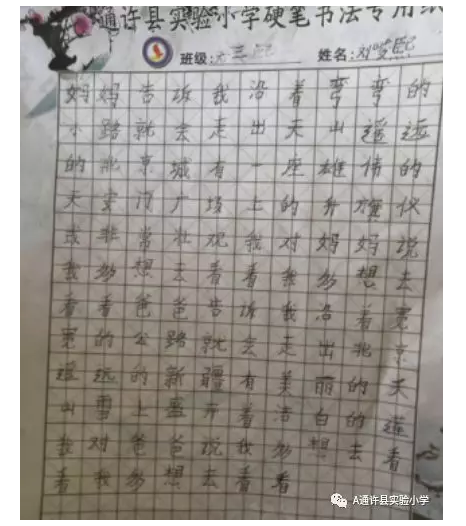 通许县实验小学硬笔书法专用纸
班级: 姓名:刘
妈妈告诉我沿着弯弯的
小路就会走出天山遥远
的北京城有一座雄伟的
天安门广场上的升旗仪
式非常壮观我对妈妈说
我多想去看看我多想去
看看爸爸告诉我沿着宽
宽的公路就会走出北京
遥远的新疆有美丽的天
山雪上盛开着洁白的莲
我对爸爸说我多想去看
看我多想去看看
A通许县实验小学